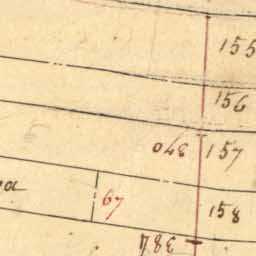 155
156
340 157
67 158
384